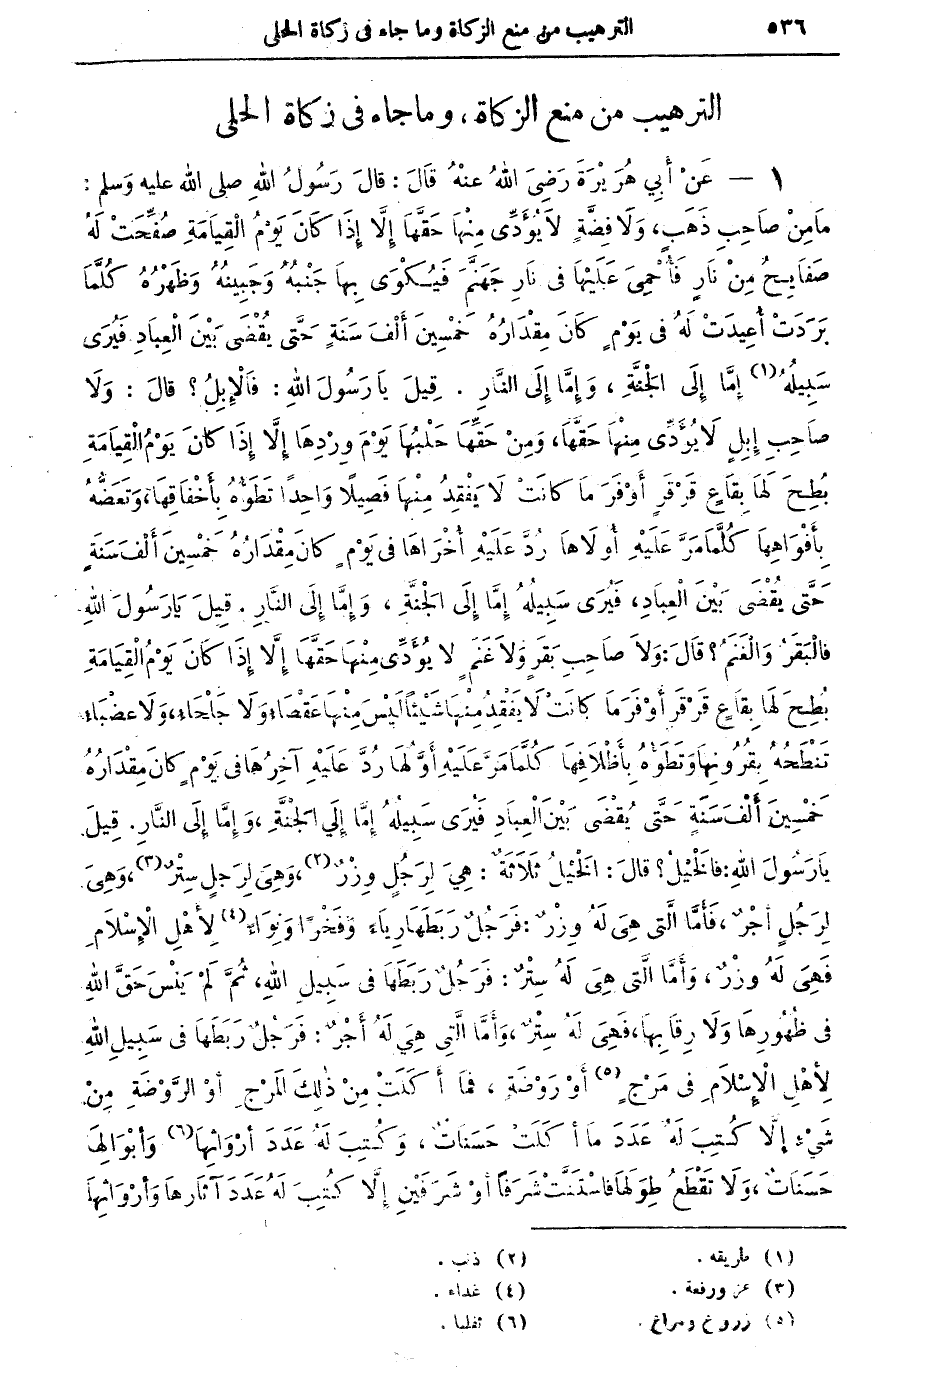 ٥٣٦ الترهيب من منع الزكاة وما جاء فى زكاة الحلى
الترهيب من منع الزكاة ، وما جاء فى زكاة الحلى
١ — عَنْ أَبِي هُرَيْرَةَ رَضِىَ اللهُ عنْهُ قَالَ : قالَ رَسُولُ اللهِ صلى الله عليه وَسلم :
مَامِنْ صاحِبِ ذَهَبٍ، وَلَا فِضَّةٍ لَايُؤَدِّى مِنْهَا حَقَّهَا إِلَّا إِذَا كَانَ يَوْمُ الْقِيَامَةِ صُفِّحَتْ لَهُ
صَفَايِحُ مِنْ نَارٍ فَأُحْمِىَ عَلَيْهَا فى نَارِ جَهَنَّمَ فَيُكْوَى بِهاَ جَنْبُهُ وَجَبِينُهُ وَظَهْرُهُ كُلَّمَا
بَرَدَتْ أُعِيدَتْ لَهُ فى يَوْمٍ كَانَ مِقْدَارُهُ خَمْسِينَ أَلْفَ سَنَةٍ حَتَّى يُقْضَى بَيْنَ الْعِبَادِ فَيُرَى
سَبِيلُهُ (١) إِمَّا إِلَى الْجَنَّةِ ، وَإِمَّا إِلَى النَّارِ . قِيلَ يَارَسُولَ اللهِ : فَالْإِبِلُ ؟ قالَ : وَلَا
صاحِبِ إِبِلٍ لَايُؤَدِّى مِنْهَا حَقَّهَا، وَمِنْ حَقِّهَا حَلْبُهَا يَوْمَ وِرْدِهَا إِلَّا إِذَا كَانَ يَوْمُ الْقِيَامَةِ
بُطِحَ لَهَا بِقَاعٍ قَرْقَرٍ أَوْفَرَ مَا كانَتْ لَا يَفْقِدُ مِنْهَا فَصِيلًا وَاحِدًا تَطَؤُهُ بِأَخْفَافِهَا، وَتَعَضُّهُ
بِأَفْوَاهِهَا كُلَّمَا مَرَّ عَلَيْهِ أُولَاهَا رُدَّ عَلَيْهِ أُخْرَاهَا فى يَوْمٍ كانَ مِقْدَارُهُ خَمْسِينَ أَلْفَ سَنَةٍ
حَتَّى يُقْضَى بَيْنَ الْعِبَادِ، فَيُرَى سَبِيلُهُ إِمَّا إِلَى الْجَنَّةِ ، وَإِمَّا إِلَى النَّارِ . قِيلَ يَارَسُولَ اللهِ
فالْبَقَرُ وَالْغَنَمُ ؟ قالَ : وَلاَ صَاحِبِ بَقَرٍ وَلاَ غَنَمٍ لا يُؤَدِّى مِنْهَا حَقَّهَا إِلَّا إِذَا كَانَ يَوْمُ الْقِيَامَةِ
بُطِحَ لَهَا بِقَاعٍ قَرْقَرٍ أَوْفَرَ مَا كانَتْ لَا يَفْقِدُ مِنْهَا شَيْئًا لَيْسَ مِنْهَا عَقْصَاءُ وَلَا جَلْحَاءُ، وَلَا عضْبَاءُ
تَنْطَحُهُ بِقُرُونِهَا وَتَطَؤُهُ بِأَظْلَافِهَا كُلَّمَا مَرَّ عَلَيْهِ أَوَّلُهَا رُدَّ عَلَيْهِ آخِرُهَا فى يَوْمٍ كانَ مِقْدَارُهُ
خَمْسِينَ أَلْفَ سَنَةٍ حَتَّى يُقْضَى بَيْنَ الْعِبَادِ فَيُرَى سَبِيلُهُ إِمَّا إِلَي الْجَنَّةِ ، وَإِمَّا إِلَى النَّارِ . قِيلَ
يَارَسُولَ اللهِ : فالْخَيْلُ ؟ قالَ : الْخَيْلُ ثَلَاثَةٌ : هِيَ لِرَجُلٍ وِزْرٌ (٢)، وَهِىَ لِرَجلٍ سِتْرٌ (٣)، وَهِىَ
لِرَجُلٍ أَجْرٌ ، فَأَمَّا الَّتِى هِىَ لَهُ وِزْرٌ : فَرَجُلٌ رَبَطَهَا رِيَاءً وَفَخْرًا وَنِوَاءً (٤) لِأَهْلِ الْإِسْلَامِ
فَهِىَ لَهُ وِزْرٌ ، وَأَمَّا الَّتِى هِىَ لَهُ سِتْرٌ : فَرَجُلٌ رَبَطَهَا فى سَبِيلِ اللهِ، ثُمَّ لَمْ يَنْسَ حَقَّ اللهِ
فى ظُهُورِهَا وَلَا رِقابِهَا، فَهِىَ لَهُ سِتْرٌ ، وَأَمَّا الَّتِى هِيَ لَهُ أَجْرٌ : فَرَجُلٌ رَبَطَهَا فى سَبِيلِ اللهِ
لِأَهْلِ الْإِسْلَامِ فى مَرْجٍ (٥) أَوْ رَوْضَةٍ ، فَمَا أَكَلَتْ مِنْ ذٰلِكَ الْمَرْجِ أَوْ الرَّوْضَةِ مِنْ
شَيْءٍ إِلَّا كُتِبَ لَهُ عَدَدَ ما أَكَلَتْ حَسَنَاتٌ ، وَكُتِبَ لَهُ عَدَدَ أَرْوَاثِهَا (٦) وَأَبْوَالِهَا
حَسَنَاتٌ ، وَلَا تَقْطَعُ طِوَلَهَا فَاسْتَنَّتْ شَرَفًا أَوْ شَرَفَيْنِ إِلَّا كُتِبَ لَهُ عَدَدَ آثَارِهَا وَأَرْوَاثِهَا
(١) طريقه . (٢) ذنب .
(٣) عز ورفعة . (٤) عداء .
(٥) زروع ومراع . (٦) ثفلها .